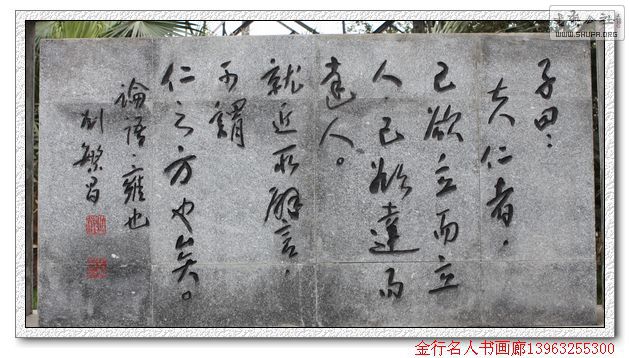 子曰：
夫仁者，
己欲立而立
人，己欲達而
達人。
就近取譬，
可謂
仁之方也矣。
論語·雍也
刘繁昌
WWW.SHUPA.ORG
金行名人书画廊13963255300